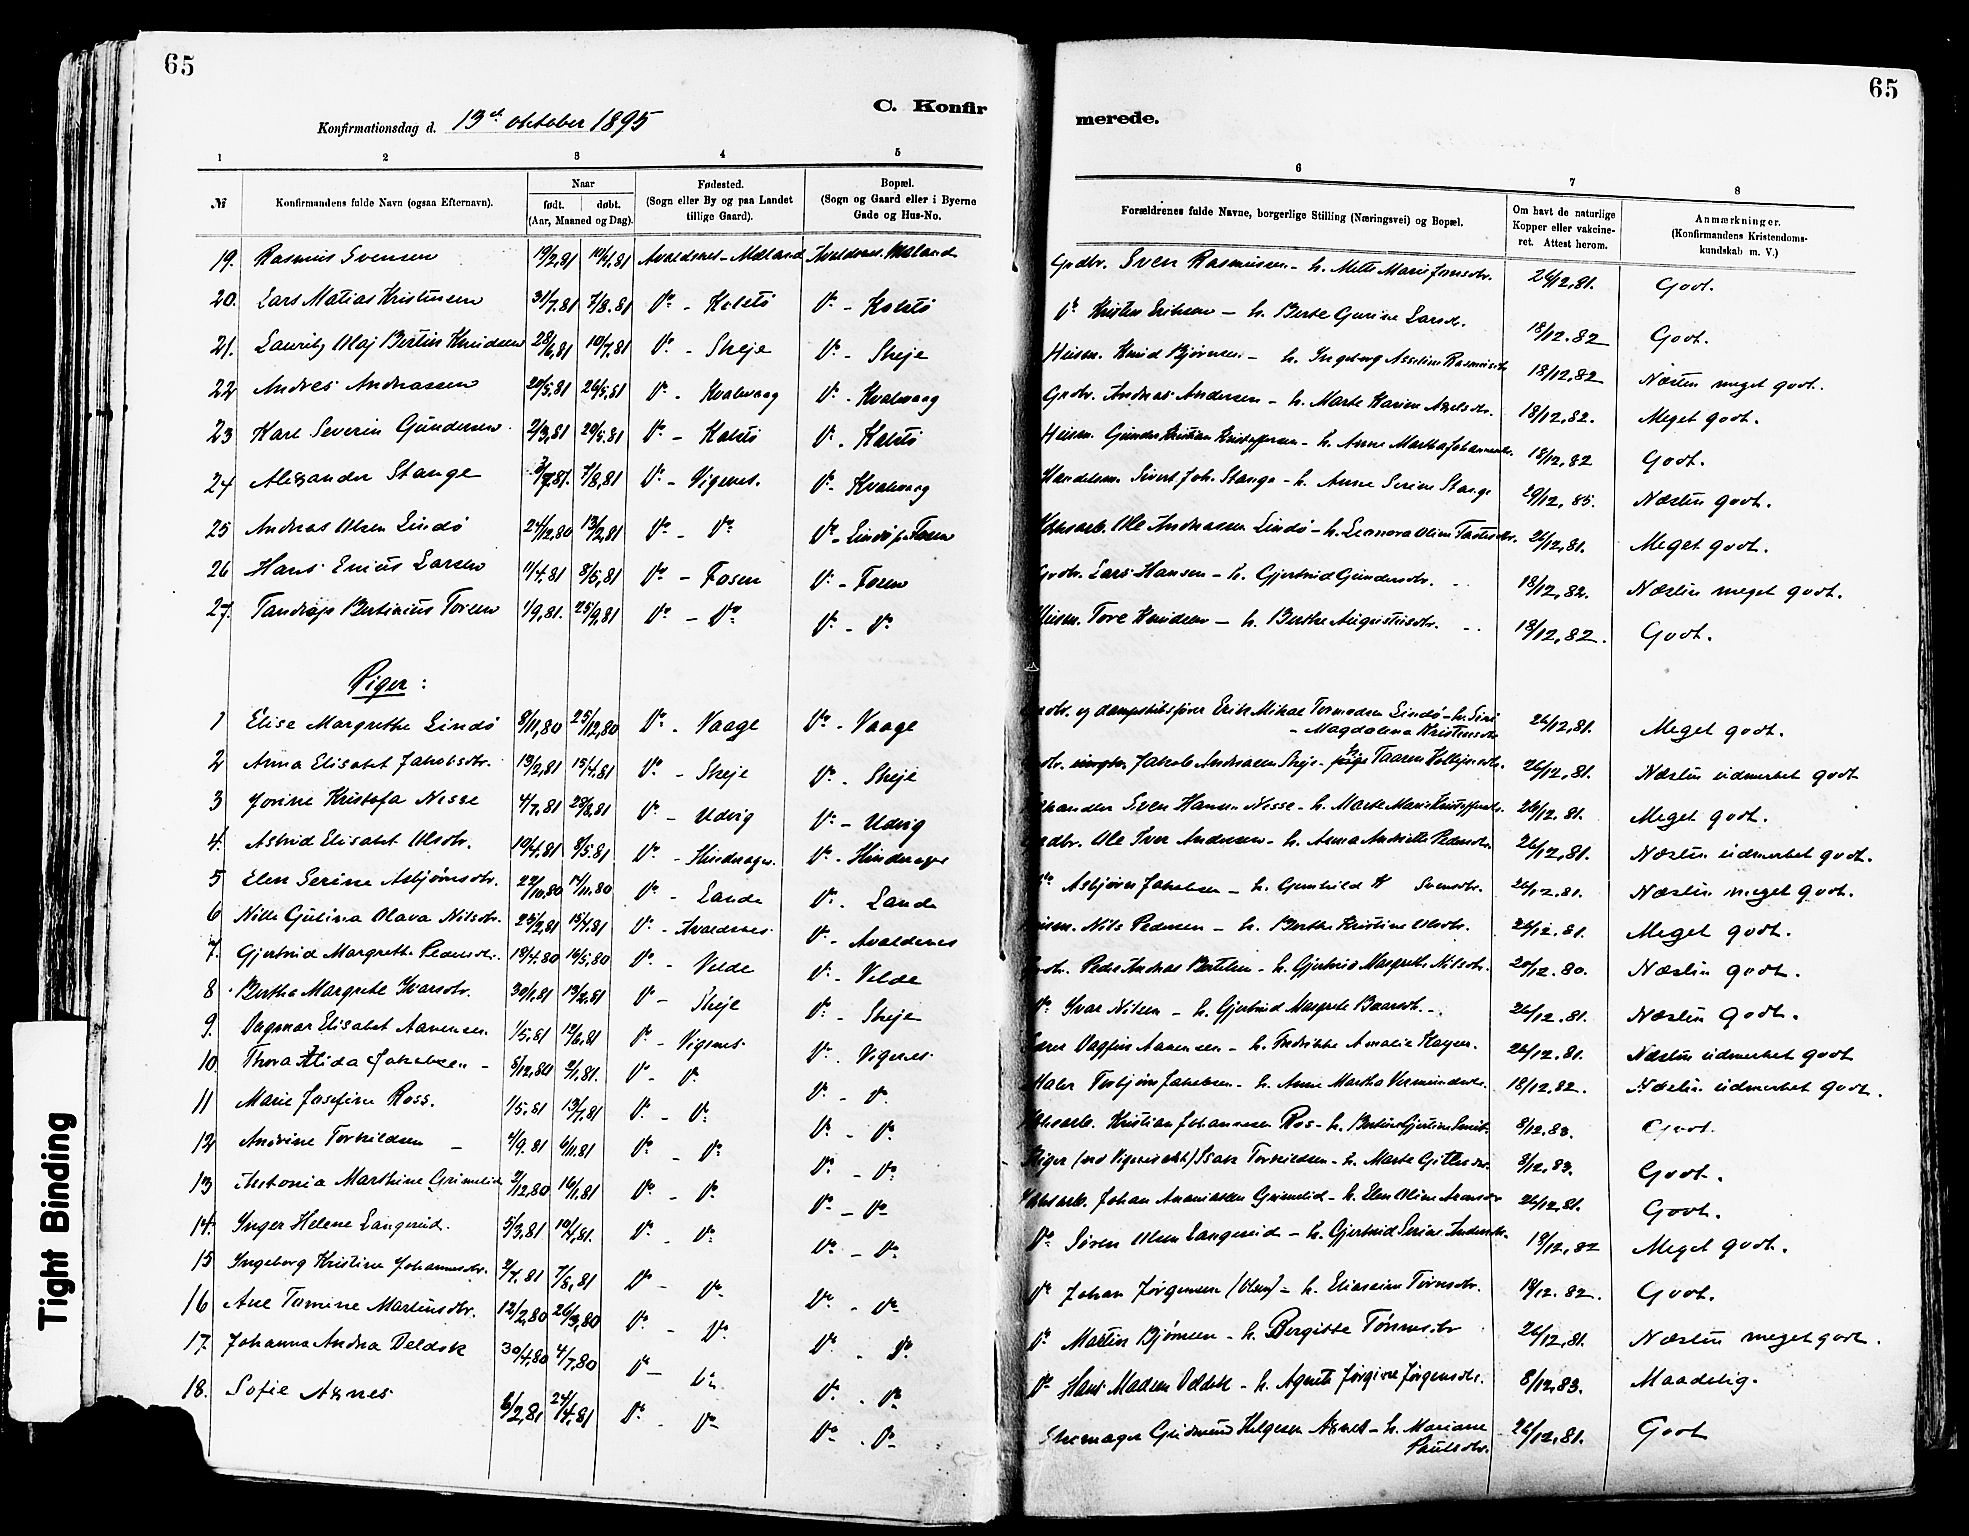 65
65
C. Konfir
merede.
Konfirmationsdag d. 13de oktober 1895
1 2 3 4 5 6 7 8
№
Konfirmandens fulde Navn (ogsaa Efternavn).
Naar
født. døbt.
(Aar, Maaned og Dag).
Fødested.
(Sogn eller By og paa Landet
tillige Gaard).
Bopæl.
(Sogn og Gaard eller i Byerne
Gade og Hus-No.
Forældrenes fulde Navne, borgerlige Stilling (Næringsvei) og Bopæl.
Om havt de naturlige
Kopper eller vakcine-
ret. Attest herom.
Anmærkninger.
(Konfirmandens Kristendoms-
kundskab m. V.)
19. Rasmus Svensen 19/2,81 10/4,81 Avaldsnes - Mæland Avaldsnes. Mæland Grdbr. Sven Rasmussen - h. Mette Marie Jonsdtr. 26/12,81. Godt.
20. Lars Matias Kristensen 31/7.81 7/8.81 Do - Kolstö Do - Kolstö Do Kristen Eriksen - h. Berte Gurine Larsdtr. 18/12.82 Godt.
21. Lauritz Olaj Bertius Knudsen 28/6,81 10/7,81 Do - Skeje Do - Skeje Husm. Knud Bjørnsen - h. Ingeborg Asseline Rasmusdtr 18/12,82 Næsten meget godt.
22 Andres Andreassen 20/5,81 26/5,81 Do - Kvalevaag Do - Kvalevaag Grdbr. Andreas Andersen - h. Marte Karine Axelsdtr. 18/12,82. Meget godt.
23 Karl Severin Gundersen 2/3,81 29/5.81 Do - Kolstö Do - Kolstö Husm. Gunder Kristian Kristoffersen - h. Anne Martha Johannesdtr. 18/12,82 Godt.
24 Alexander Stange 3/7,81. 7/8,81 Do - Vigsnes. Do - Kvalevaag Handelsm. Sivert Joh. Stange - h. Anne Serine Stange 29/12,85. Næsten godt.
25 Andreas Olsen Lindö 24/12,80 13/2,81 Do - Do Do - Lindö Fosen Ole Andreassen Lindö - h. Leonora Oline 26/12,81. Meget godt.
26 Hans Enius Larsen 11/4.81 8/5,81 Do - Fosen Do - Fosen Grdbr. Lars Hansen - h. Gjertrud Gundersdtr. 18/12,82. Næsten meget godt.
27. Tandrup Bertinius Toresen 1/9,81. 25/9,81 Do - Do Do - Do Husm. Tore Knudsen - h. Berthe Augustusdtr. 18/12,82. Godt.
Piger:
1 Elise Margrethe Lindö 8/11,80 25/12,80 Do - Vaage Do - Vaage og dampskibsfører Erik Mikal Tormodsen Lindö - h. Siri
- Magdalena Kristensdtr 26/12,81. Meget godt.
2 Anna Elisabet Jakobsdtr. 19/2,81 15/4.81 Do - Skeje Do - Skeje Jakob Andreassen Skeje - Taaren 26/12,81. Næsten udmerket godt
3 Jorine Kristofa Nesse 4/7,81 28/8,81 Do - Udvig Do - Udvig Sven Hansen Nesse - h. Marte Marie Kristoffersdtr. 26/12,81. Meget godt.
4. Astrid Elisabet Olsdtr. 10/4.81 8/5.81 Do - Hinderager Do - Hinderager Grdbr. Ole Iver Andersen - h. Anna Andrette Pedersdtr 26/12,81. Næsten udmerket godt.
5 Elen Serine Asbjørnsdtr. 22/10,80 14/11,80 Do - Lande Do - Lande Do Asbjørn Jakobsen - h. Gunhild K Svensdtr. 26/12.81. Næsten meget godt.
6 Nille Gurina Olava Nilsdtr. 25/2,81 15/4.81 Do - Avaldsnes Do - Avaldsnes Husm. Nils Pedersen - h. Berthe Kristine Olsdtr. 26/12.81. Meget godt.
7. Gjertrud Margrethe Pedersdtr. 19/4.80 16/5,80 Do - Velde Do - Velde Peder Andreas Bertelsen - h. Gjertrud Margrete Nilsdtr. 20/12.80. Næsten godt.
8 Bertha Margrete Ivarsdtr. 30/1,81 13/2,81 Do - Skeje Do - Skeje Do Ivar Nilsen - h. Gjertrud Margrete Baarsdtr. 26/12,81. Næsten godt.
9. Dagmar Elisabet Aanensen 1/5,81 12/6,81 Do - Vigsnes Do - Vigsnes Lærer Dagfin Aanensen - h. Fredrikke Amalie Kayser. 26/12,81. Næsten udmerket godt
10 Thora Alida Jakobsen - 5/12,80 2/1,81. Do - Do Do - Do Maler Torbjørn Jakobsen - h. Anne Martha 18/12,82. Næsten udmerket godt.
11 Marie Josefine Ross. 1/5.81 13/7,81 Do - Do Do - Do Kristian Johannesen Ros - h. 8/12.83. Godt.
12 Andrine Torkildsen - 4/9.81 6/11.81 Do - Do Do - Do Stiger (ved Vigsnes) Isak Torkildsen - h. Marte 8/12.83. Godt.
13 Antonia Marthine Grimelid 2/12,80 16/1,81 Do - Do Do - Do Johan Ananiassen Grimelid - h. Elen Oline 26/12,81. Godt.
14. Inger Helene Langereid. 5/3,81 10/4,81. Do - Do Do - Do Do Søren Olsen Langereid - h. Gjertrud Serine Andersdtr. 18/12,82 Meget godt.
15 Ingeborg Kristine Johannesdtr. 2/7.81 7/8,81 Do - Do Do - Do Do Johan Jørgensen (Olsen) - h. 18/12.82. Godt.
16 Ane Tomine Martinsdtr. 12/2,80 26/3,80 Do - Do Do - Do Do Martin Bjørnsen - h. Bergitte Tönnesdtr 26/12,81. Næsten meget godt.
17. Johanna Andrea Deldok 30/4.80 4/7.80 Do - Do Do - Do Do Hans Madsen Deldok - h. Agnete Jørgine Jørgensdtr. 8/12,83. Maadelig.
18. Sofie Axnes 6/2,81 24/4,81 Do - Do Do - Do Skomager Gudmund Helgesen Axnes - h. Mariane
Paulsdtr. 26/12,81. Godt
Tight Binding